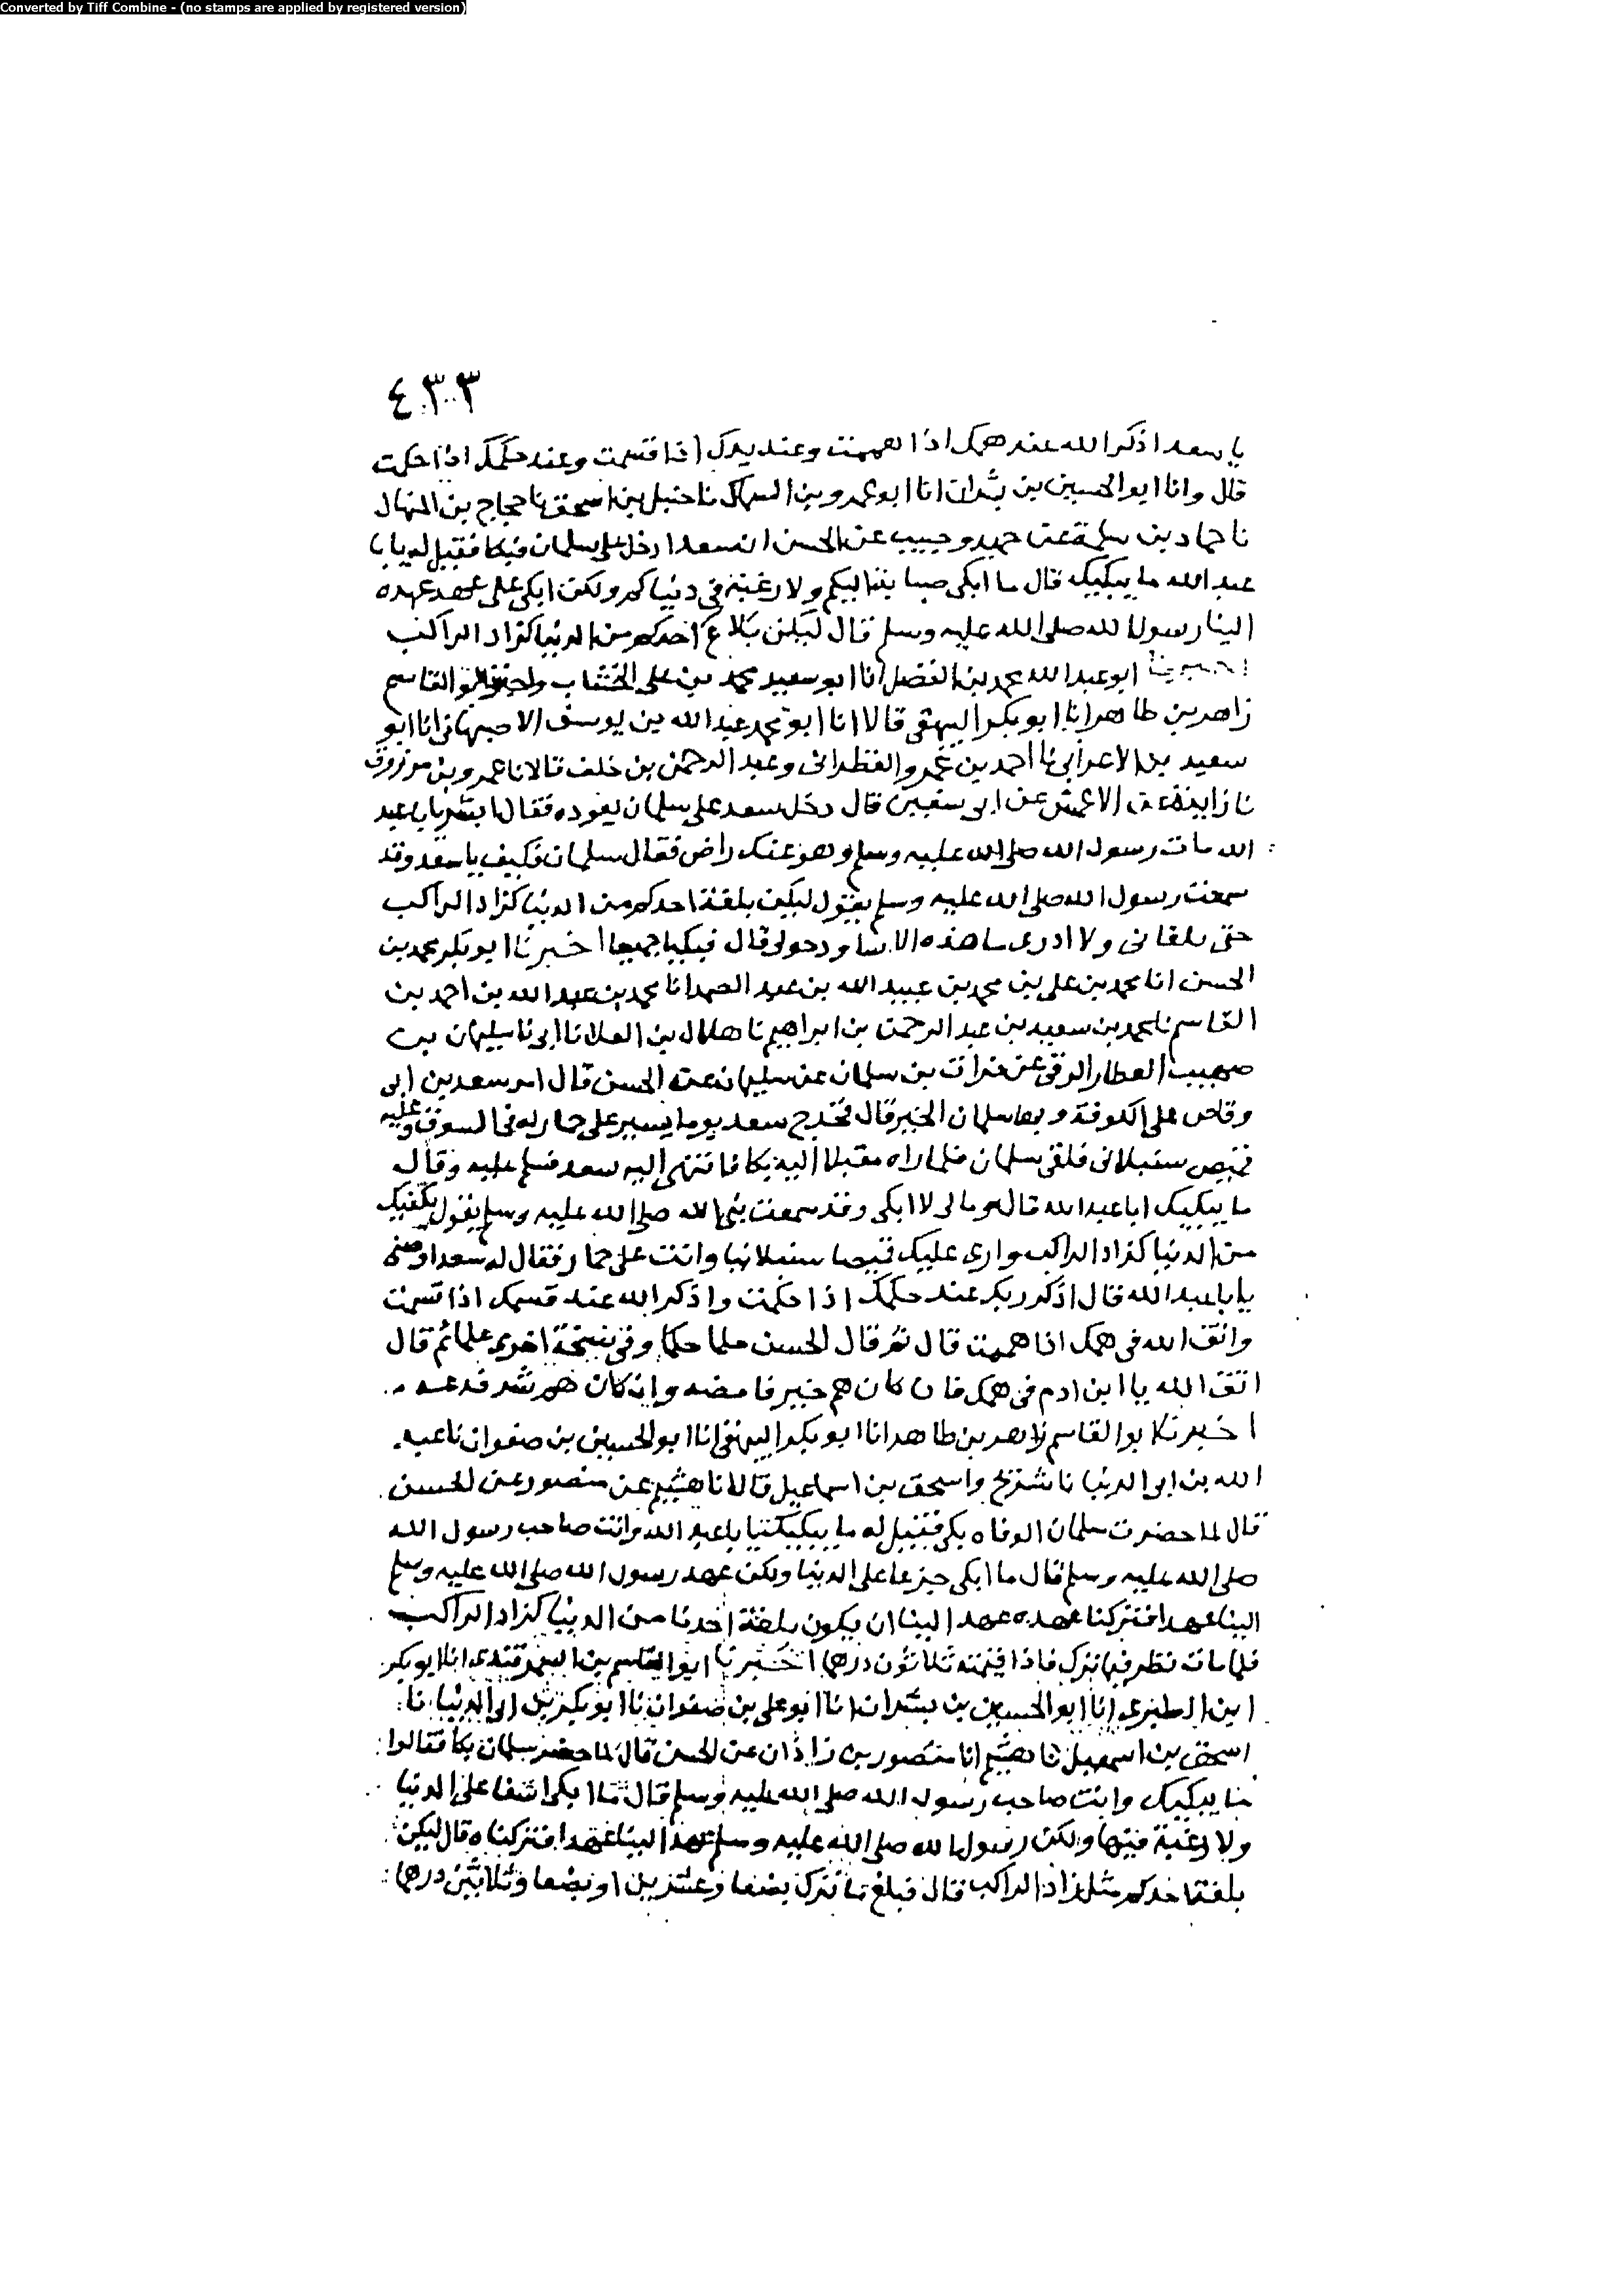 Converted by Tiff Combine - (no stamps are applied by registered version)
٤٣٣
يا سعد اذكر الله عند همك اذا هممت وعند يدك اذا قسمت وعند حكمك اذا حكمت
قال وانا ابو الحسين بن بشران انا ابو عمرو بن السماك نا حنبل بن اسحق نا حجاج بن المنهال
نا حماد بن سلمة عن حميد وحبيب عن الحسن ان سعدا دخل على سلمان فبكا فقيل له يا با
عبد الله ما يبكيك قال ما ابكى صبا بنا اليكم ولا رغبة فى دنياكم ولكن ابكى على عهد عهده
الينا رسول الله صلى الله عليه وسلم قال ليكن بلاغ احدكم من الدنيا كزاد الراكب
اخبرنا ابو عبد الله محمد بن الفضل انا ابو سعيد محمد بن على الخشاب القاسم
زاهر بن طاهر انا ابو بكر البيهقى قالا انا ابو محمد عبد الله بن يوسف الاصبهانى انا ابو
سعيد بن الاعرابى نا احمد بن عمرو القطرانى وعبد الرحمن بن خلف قالا نا عمرو بن مرزوق
نا زايدة عن الاعمش عن ابى سفين قال دخل سعد على سلمان يعوده فقال ابشر يا با عبد
الله مات رسول الله صلى الله عليه وسلم وهو عنك راض فقال سلمان فكيف يا سعد وقد
سمعت رسول الله صلى الله عليه وسلم يقول ليكن بلغة احدكم من الدنيا كزاد الراكب
حتى يلقانى ولا ادرى ما هذه الاساود حولى قال فبكيا جميعا اخبرنا ابو بكر محمد بن
الحسن انا محمد بن على بن محمد بن عبيد الله بن عبد الصمد انا محمد بن عبد الله بن احمد بن
القاسم نا محمد بن سعيد بن عبد الرحمن بن ابراهيم نا هلال بن العلا نا ابى نا سليمان بن
صهيب العطار الرقى عن فرات بن سلمان عن سليمان عن الحسن قال امر سعد بن ابى
وقاص على الكوفة وبها سلمان الخير قال فخرج سعد يوما يسير على حمار له فى السوق وعليه
قميص سنبلانى فلقى سلمان فلما راه مقبلا اليه بكا فانتهى اليه سعد فسلم عليه وقال
ما يبكيك ابا عبد الله قال وما لى لا ابكى وقد سمعت نبى الله صلى الله عليه وسلم يقول يكفيك
من الدنيا كزاد الراكب وارى عليك قميصا سنبلانيا وانت على حمار فقال له سعد اوصنى
يا با عبد الله قال اذكر ربك عند حكمك اذا حكمت واذكر الله عند قسمك اذا قسمت
واتق الله فى همك اذا هممت قال ثم قال الحسن حلما حكما وفى نسخة اخرى علما ثم قال
اتق الله يا ابن ادم فى همك فان كان هم خير فامضه وان كان هم شر فدعه
اخبرنا ابو القاسم زاهر بن طاهر انا ابو بكر البيهقى انا ابو الحسين بن صفوان نا عبد
الله بن ابى الدنيا نا شريح واسحق بن اسماعيل قالا نا هشيم عن منصور عن الحسن
قال لما حضرت سلمان الوفاه بكى فقيل له ما يبكيك يا با عبد الله وانت صاحب رسول الله
صلى الله عليه وسلم قال ما ابكى جزعا على الدنيا ولكن عهد رسول الله صلى الله عليه وسلم
الينا عهدا فتركنا عهده عهد الينا ان يكون بلغة احدنا من الدنيا كزاد الراكب
فلما مات نظر فيما ترك فاذا قيمته ثلاثون درهما اخبرنا ابو القاسم بن السمرقندى انا ابو بكر
ابن الطبرى انا ابو الحسين بن بشران انا ابو على بن صفوان نا ابو بكر بن ابى الدنيا نا
اسحق بن اسمعيل نا هشيم انا منصور بن زاذان عن الحسن قال لما حضر سلمان بكا فقالوا
ما يبكيك وانت صاحب رسول الله صلى الله عليه وسلم قال ما ابكى اسفا على الدنيا
ولا رغبة فيها ولكن رسول الله صلى الله عليه وسلم عهد الينا عهدا فتركناه قال ليكن
بلغة احدكم مثل زاد الراكب قال فبلغ ما ترك بضعا وعشرين او بضعا وثلاثين درهما